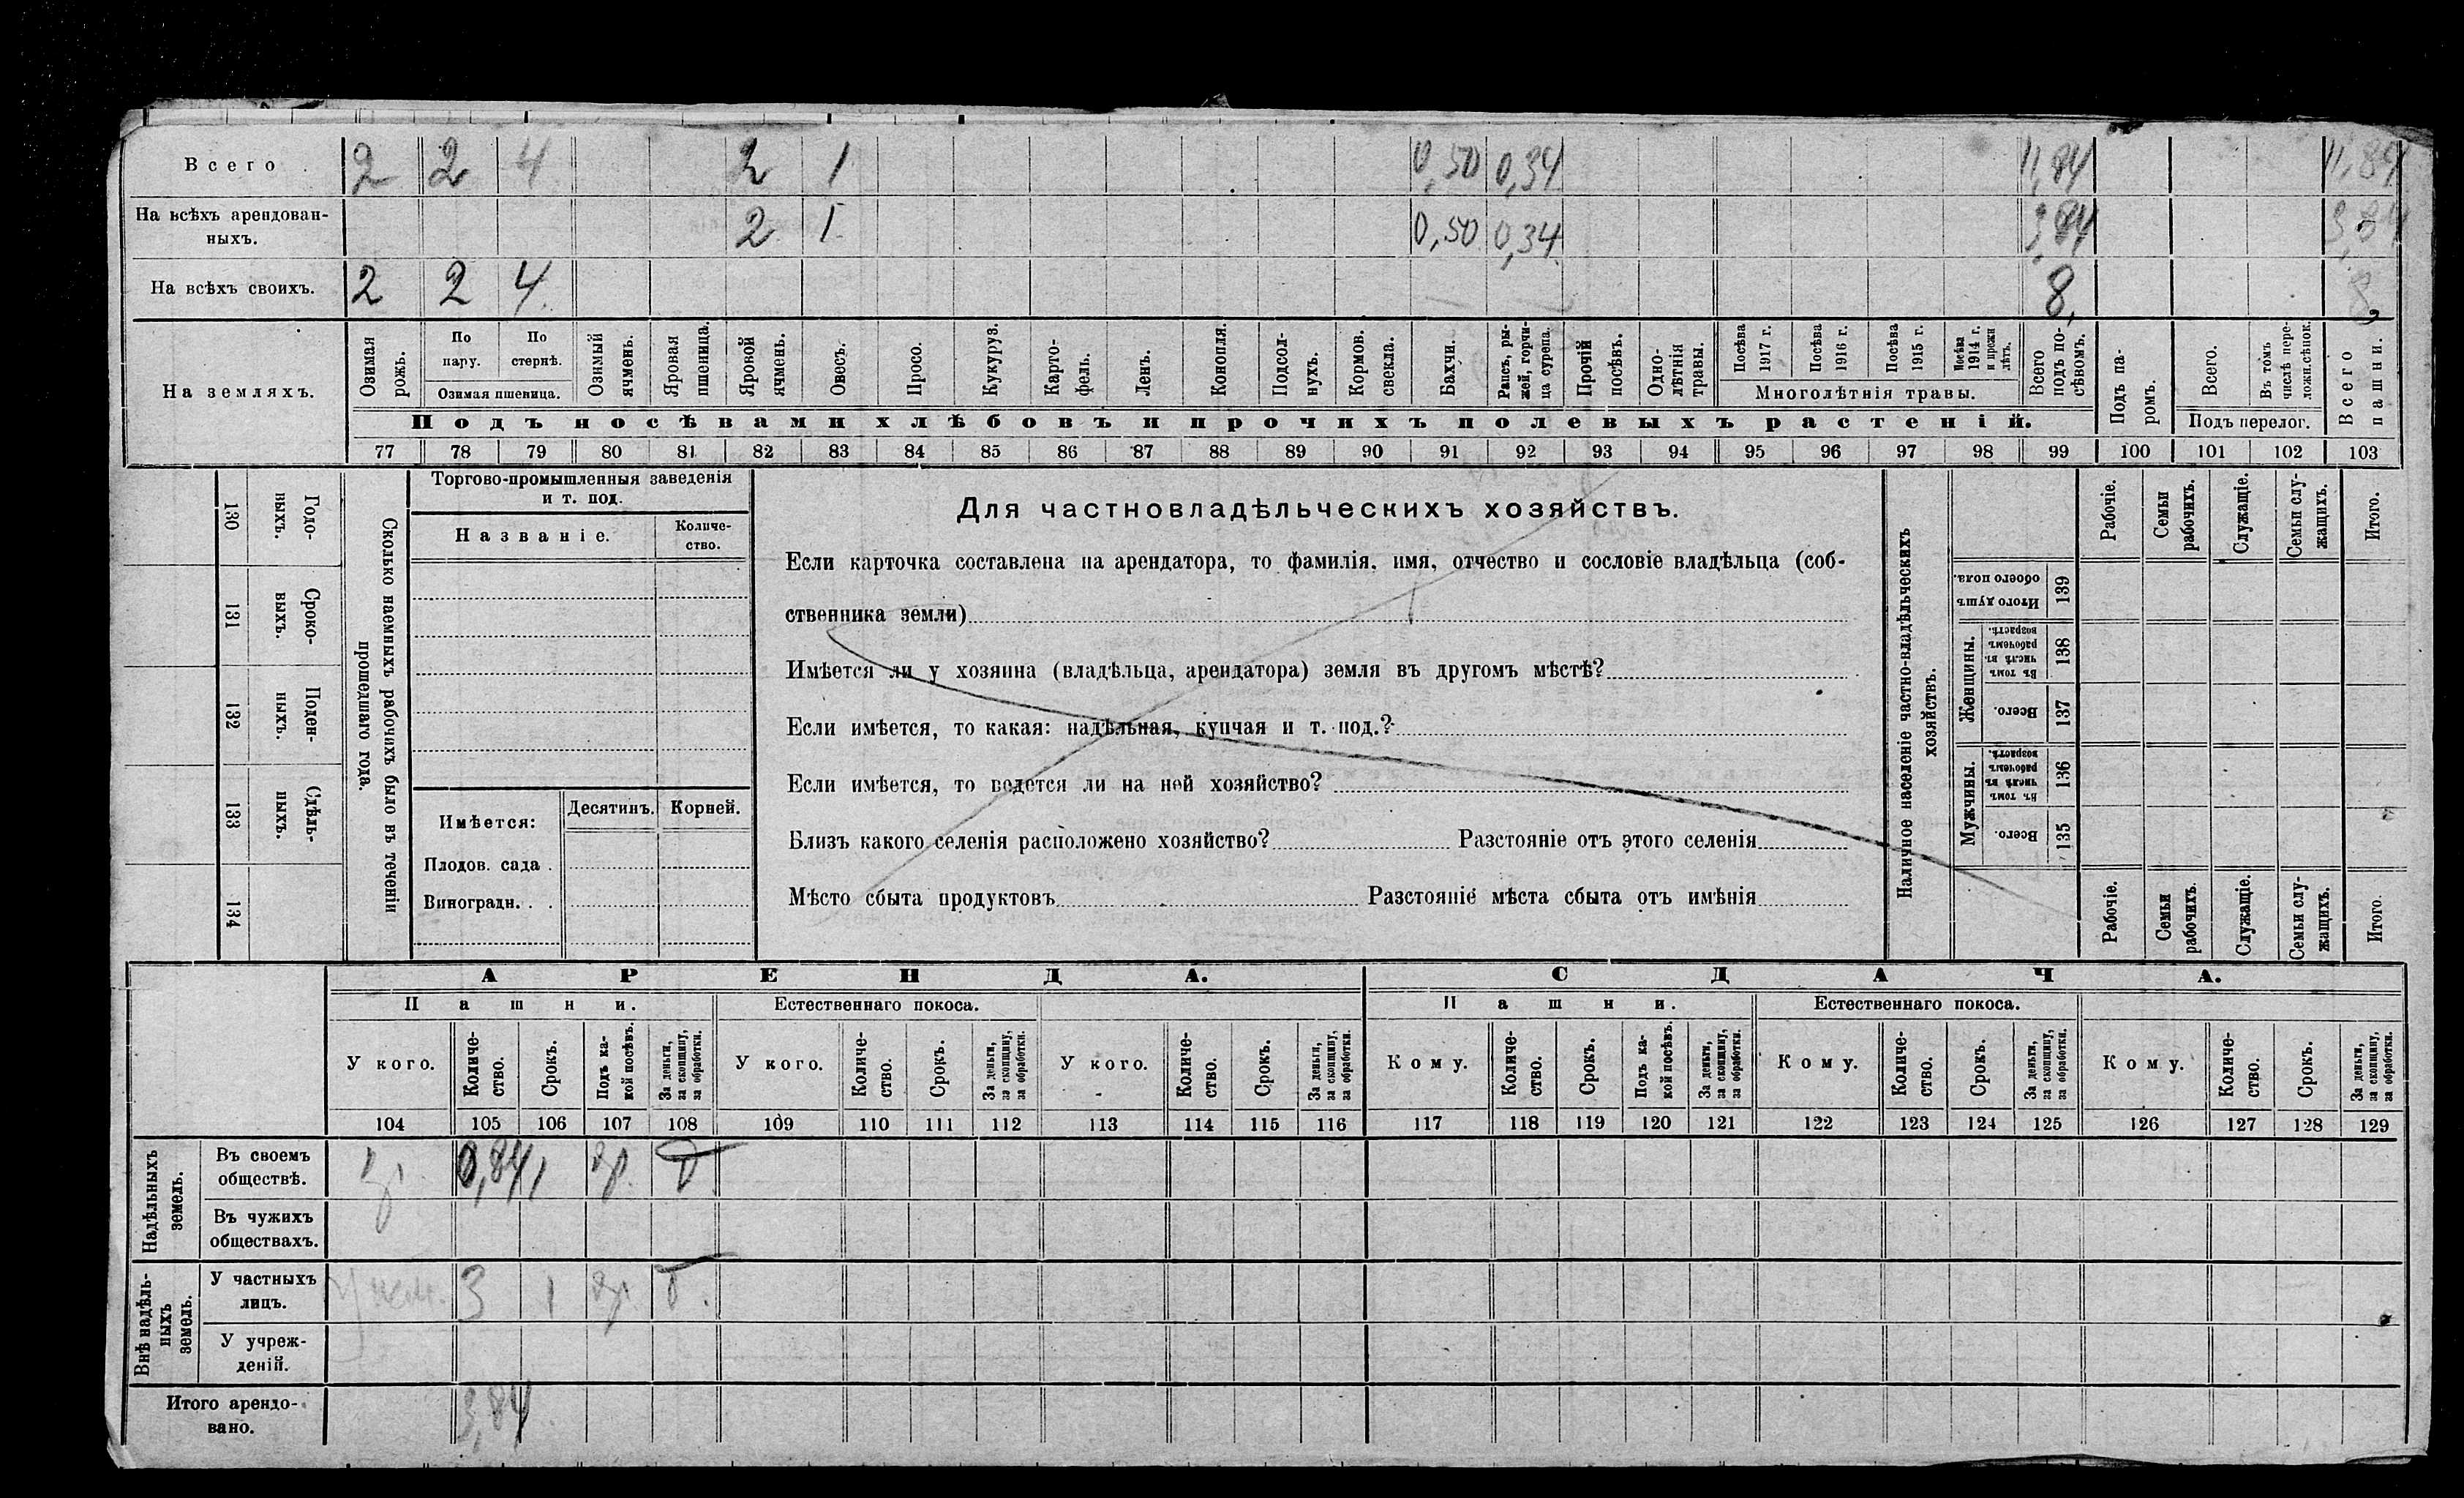 Всего 2 2 4 2 1 0,50 0,34 11,84 11,84
На всѣхъ арендован-
ныхъ. 2 1 0,50 0,34 3,84 3,84
На всѣхъ своихъ. 2 2 4 8 8
На земляхъ.
Озимая рожь.
По пару.
По стернѣ.
Озимая пшеница.
Озимый ячмень.
Яровая пшеница.
Яровой ячмень.
Овесъ.
Просо.
Кукуруз.
Карто-
фель.
Ленъ.
Конопля.
Подсол-
нухъ.
Кормов.
свекла.
Бахчи.
Рапсъ, ры-
жей, горчи-
ца сурепа.
Прочій
посѣвъ.
Одно-
лѣтнія
травы.
Посѣва
1917 г.
Посѣва
1916 г.
Посѣва
1915 г.
Посѣва
1914 г.
и прежн
лѣтъ.
Многолѣтнія травы.
Всего
подъ по-
сѣвомъ.
Подъ па-
ромъ.
Всего.
Въ томъ
числѣ пере-
ложн.сѣнок.
Подъ перелог.
Всего
пашни.
Подъ посѣвами хлѣбовъ и прочихъ полевыхъ растеній.
77 78 79 80 81 82 83 84 85 86 87 88 89 90 91 92 93 94 95 96 97 98 99 100 101 102 103
130 Годо-
выхъ.
131 Сроко-
выхъ.
132 Поден-
ныхъ.
133 Сдѣль-
ныхъ.
134
Сколько наемныхъ рабочихъ было въ теченіи
прошедшаго года.
Торгово-промышленныя заведенія
и т. под.
Названіе.
Количе-
ство.
Имѣется: Десятинъ. Корней.
Плодов. сада .
Виноградн. . .
Для частновладѣльческихъ хозяйствъ.
Если карточка составлена на арендатора, то фамилія, имя, отчество и сословіе владѣльца (соб-
ственника земли)
Имѣется ли у хозяина (владѣльца, арендатора) земля въ другомъ мѣстѣ?
Если имѣется, то какая: надѣльная, купчая и т. под.?
Если имѣется, то ведется ли на ней хозяйство?
Близъ какого селенія расположено хозяйство? Разстояніе отъ этого селенія
Мѣсто сбыта продуктовъ Разстояніе мѣста сбыта отъ имѣнія
Наличное населеніе частно-владѣльческихъ
хозяйствъ.
Рабочіе.
Семьи
рабочихъ.
Служащіе.
Семьи слу-
жащихъ.
Итого.
Итого душъ
обоего пола.
139
Женщины.
Въ томъ
числѣ въ
рабочемъ
возрастѣ.
138
Всего.
137
Мужчины.
Въ томъ
числѣ въ
рабочемъ
возрастѣ.
136
Всего.
135
Рабочіе.
Семьи
рабочихъ.
Служащіе.
Семьи слу-
жащихъ.
Итого.
АРЕНДА. СДАЧА.
Пашни. Естественнаго покоса. Пашни. Естественнаго покоса.
У кого.
Количе-
ство.
Срокъ.
Подъ ка-
кой посѣвъ.
За деньги,
за скопщину,
за обработки.
У кого.
Количе-
ство.
Срокъ.
За деньги,
за скопщину,
за обработки.
У кого.
Количе-
ство.
Срокъ.
За деньги,
за скопщину,
за обработки.
Кому.
Количе-
ство.
Срокъ.
Подъ ка-
кой посѣвъ.
За деньги,
за скопщину,
за обработки.
Кому.
Количе-
ство.
Срокъ.
За деньги,
за скопщину,
за обработки.
Кому.
Количе-
ство.
Срокъ.
За деньги,
за скопщину,
за обработки.
104 105 106 107 108 109 110 111 112 113 114 115 116 117 118 119 120 121 122 123 124 125 126 127 128 129
Надѣльныхъ
земель.
Въ своемъ
обществѣ. 0,84 1
Въ чужихъ
обществахъ.
Внѣ надѣль-
ныхъ
земель.
У частныхъ
лицъ. 3 1
У учреж-
деній.
Итого арендо-
вано. 3,84